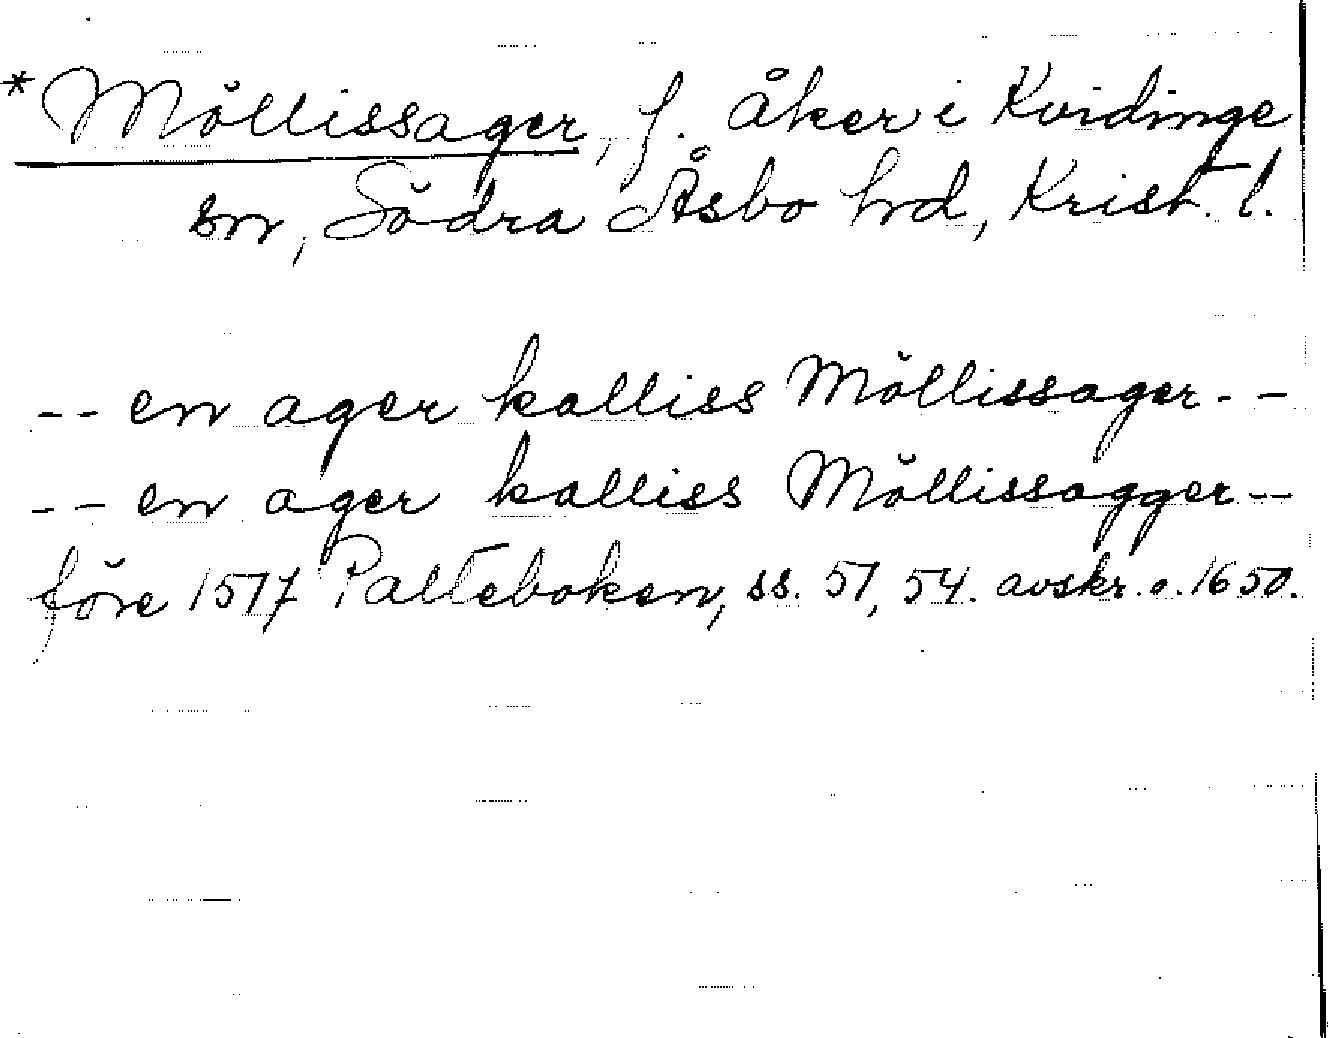 *Möllissager, f. åker i Kvidinge
sn, Södra Åsbo hrd, Krist. l.
-- en ager kalliss Möllissager--
-- en ager kalliss Möllissagger--
före 1517 Palteboken, ss. 51, 54. avskr. o. 1650.